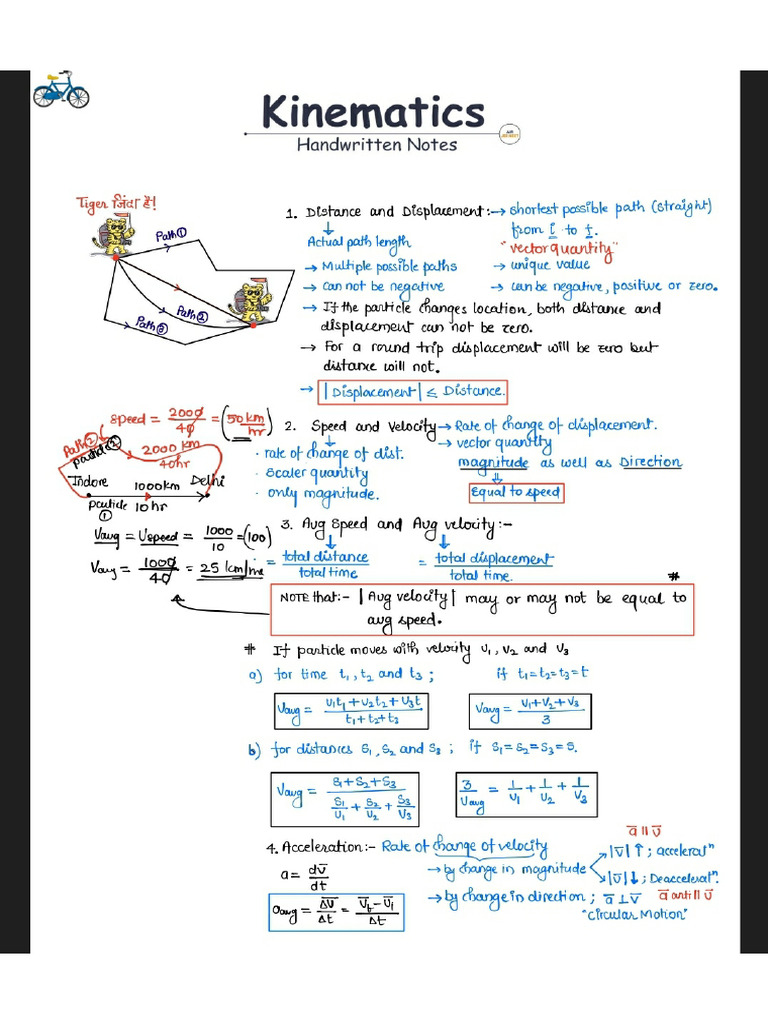 Kinematics
Handwritten Notes
Tiger जिंदा है!
Path①
Path②
Path③
1. Distance and Displacement:- → shortest possible path (straight)
from i to f.
Actual path length
"vector quantity"
→ Multiple possible paths → unique value
→ can not be negative → can be negative, positive or zero.
→ If the particle changes location, both distance and
displacement can not be zero.
→ For a round trip displacement will be zero but
distance will not.
→ |Displacement| ≤ Distance.
Speed = 2000/40 = (50 km/hr)
Path②
particle②
2000 km
40hr
Indore 1000km Delhi
particle 10 hr
①
2. Speed and Velocity → Rate of change of displacement.
→ vector quantity
· rate of change of dist. magnitude as well as Direction
· scaler quantity
· only magnitude. Equal to speed
Vavg = Uspeed = 1000/10 = (100)
Vavg = 1000/40 = 25 km/
3. Avg Speed and Avg velocity:-
= total distance/total time = total displacement/total time.
#
NOTE that:- |Avg velocity| may or may not be equal to
avg speed.
# If particle moves with velocity v1, v2 and v3
a) for time t1, t2 and t3 ; if t1=t2=t3=t
Vavg = v1t1+v2t2+v3t/t1+t2+t3 Vavg = v1+v2+v3/3
b) for distances s1, s2 and s3 ; if s1=s2=s3=s.
Vavg = s1+s2+s3/s1/v1 + s2/v2 + s3/v3 3/Vavg = 1/v1 + 1/v2 + 1/v3
4. Acceleration:- Rate of change of velocity
a̅ || v̅
a = dv̅/dt
→ by change in magnitude
|v̅| ↑ ; acceleratⁿ
|v̅| ↓ ; Deacceleratⁿ.
a̅ anti || v̅
aavg = Δv̅/Δt = v̅f - v̅i/Δt
→ by change in direction ; a̅ ⊥ v̅
"Circular Motion"